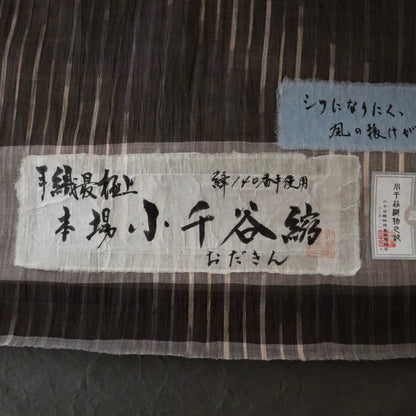 シワになりにくく、
風の抜けが
手織最極上
緯140番手使用
本場小千谷縮
おだきん
小千谷織物之証